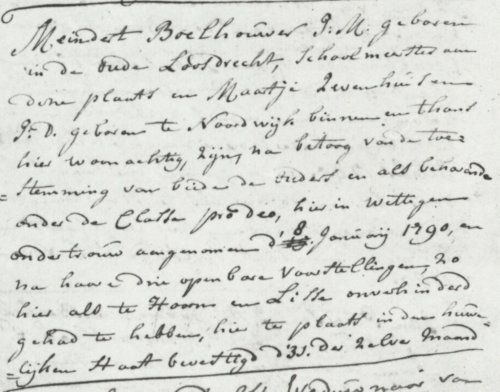 Meindert Boelhouwer J: M. geboren
in de oude Loosdrecht, Schoolmeester aan
dene plaats en Maartje Zwenhuisen
Jr. D. geboren te Noordwijk binnen en thans
hier woonachtig, zijn, na betoog van de toe=
=stemming van beide de ouders en als behoorende
onder de Classe pro deo, hier in wettigen
ondertrouw aangenomen d' 8 Januarij 1790, en
na haare drie openbare Voorstellingen, zo
hier als te Hoorn en Lisse onverhinderd
gehad te hebben, hier te plaats in den huwe=
lijken Staat bevestigd d'31. der zelve maand